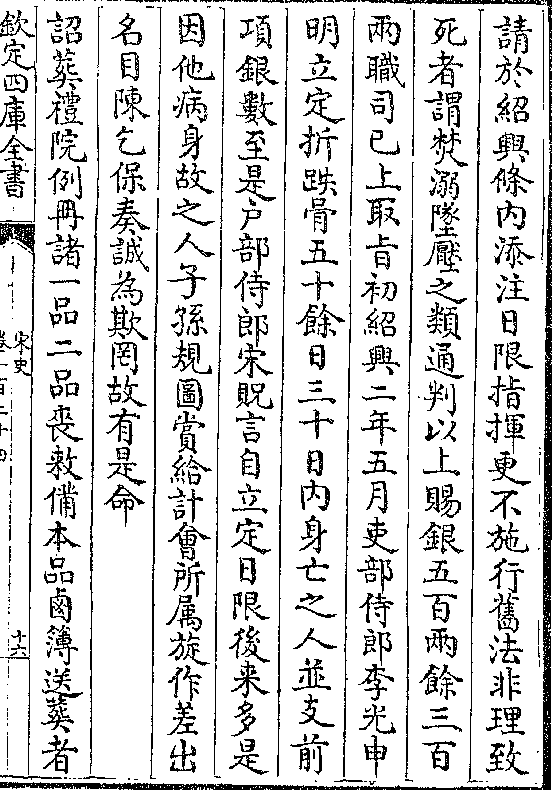 請於紹興條内添注日限指揮更不施行舊法非理致
死者謂焚溺墜壓之類通判以上賜銀五百兩餘三百
兩職司已上取㫖初紹興二年五月吏部侍郎李光申
明立定折跌骨五十餘日三十日内身亡之人並支前
項銀數至是户部侍郎宋貺言自立定日限後来多是
因他病身故之人子孫規圖賞給計會所属旋作差出
名目陳乞保奏誠為欺罔故有是命
詔葬禮院例冊諸一品二品喪敕備本品鹵簿送葬者
欽定四庫全書
宋史
卷一百二十四
十六